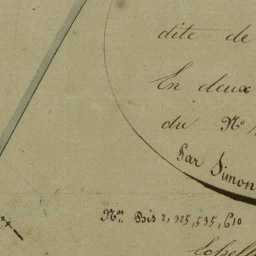 dite de
En deux
du No
Par Simon
Nos. Bis 2, 525, 535, 610
Echell